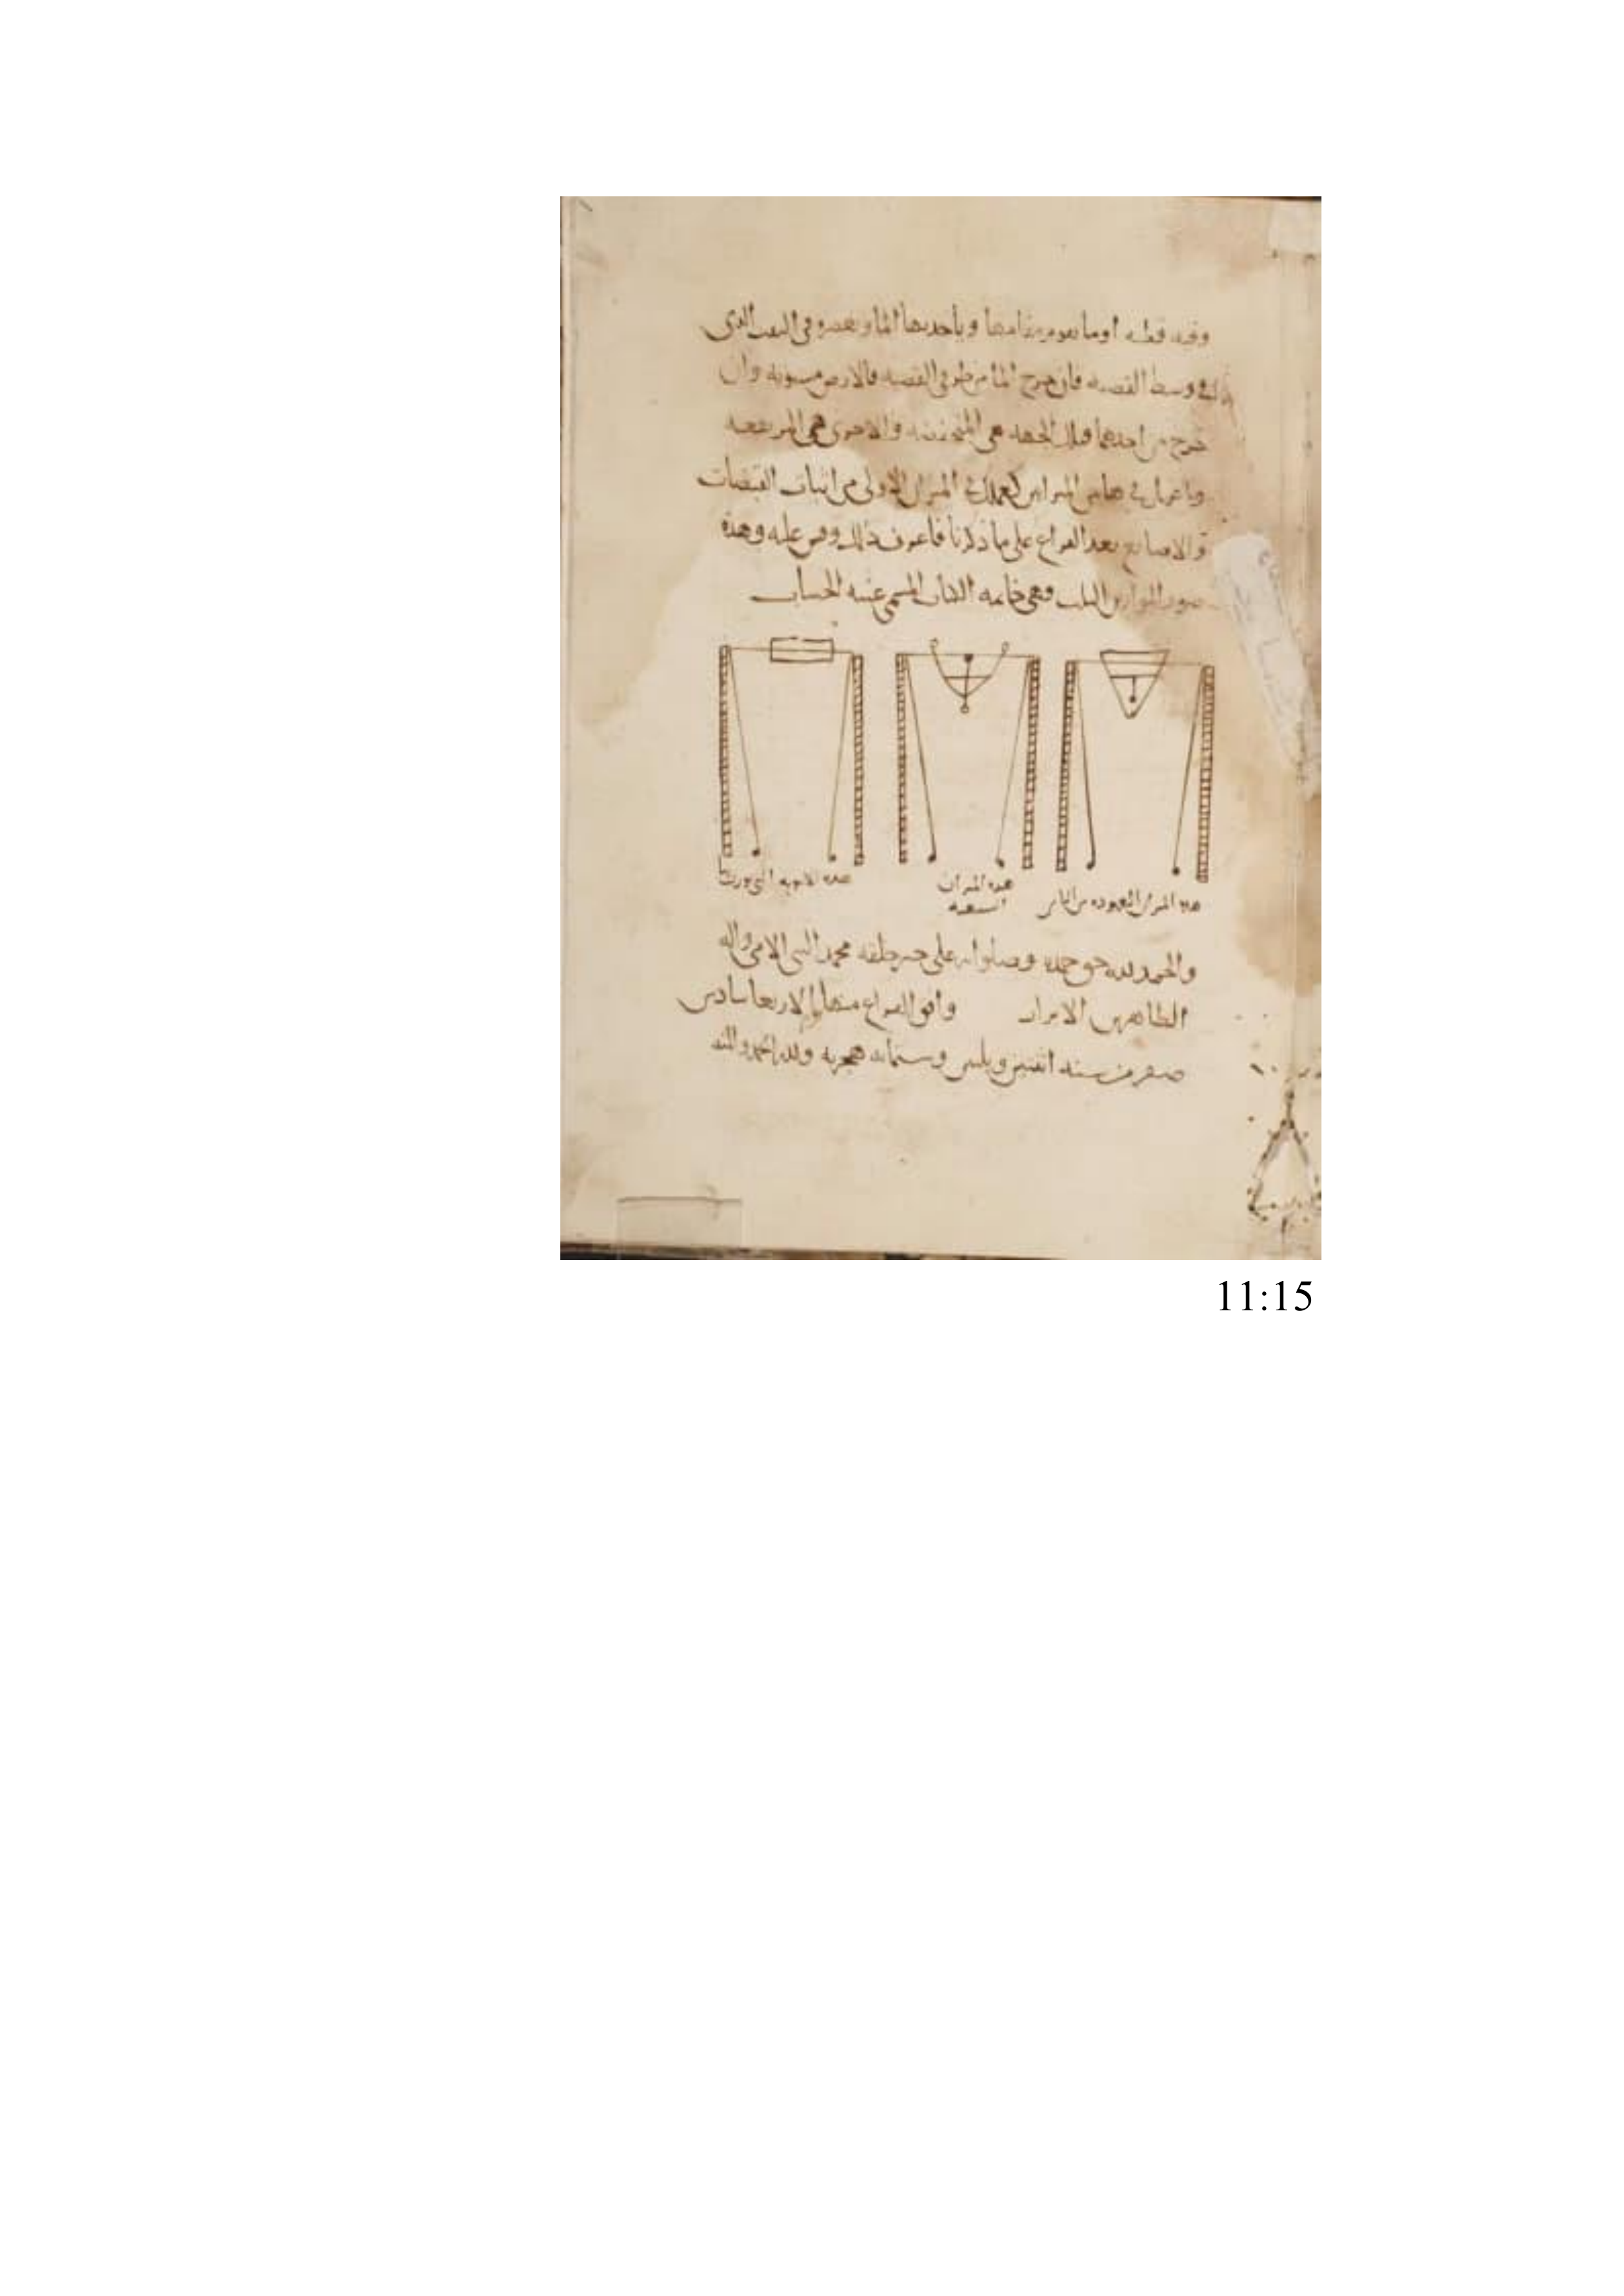 وفيه قطنه او ما يقوم مقامها وياخد بها الما ويعصره في الثقب الذي
في وسط القصبه فان خرج الما من طرفي القصبه فالارض مستويه وان
خرج من احدهما فتلك الجهه هي المنخفضه والاخرى هي المرتفعه
واعمل في هاتين الميزانين كعملك في الميزان الاولى من اثبات القبضات
والاصابع بعد الفراغ على ما ذكرنا فاعرف ذلك وقس عليه وهذه
صوره الموازين الثلث وهي خاتمه الكتاب المسمى غنيه الحساب
هذه الميزان المعهوده بين الناس
هذه الميزان
هذه الانبوبه التي
والحمد لله حق حمده وصلواته على خير خلقه محمد النبي الامي واله
الطاهرين الابرار وافق الفراغ منها الاربعا سادس
صفر من سنه اثنتين وثلثين وستمائه هجريه ولله الحمد والمنه
11:15